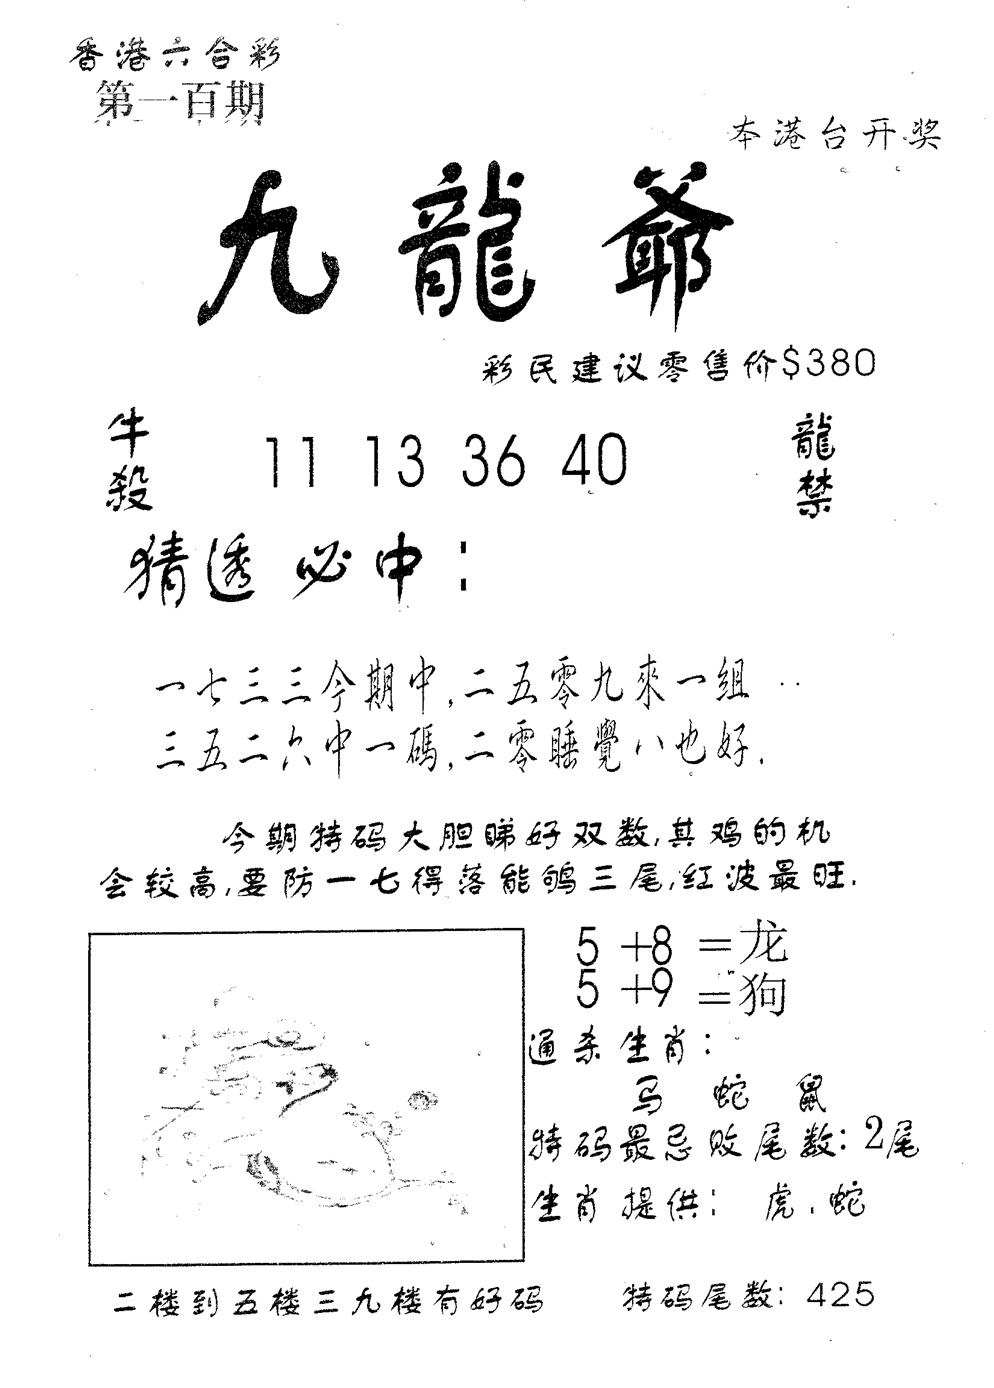 香港六合彩
第一百期
本港台开奖
九龍爺
彩民建议零售价$380
牛殺 11 13 36 40 龍禁
猜透必中：
一七三三今期中,二五零九來一組
三五二六中一碼,二零睡覺八也好.
今期特码大胆睇好双数,其鸡的机
会较高,要防一七得落能鸲三尾,红波最旺.
5+8=龙
5+9=狗
通杀生肖：
马 蛇 鼠
特码最忌败尾数：2尾
生肖提供： 虎.蛇
二楼到五楼三九楼有好码 特码尾数：425